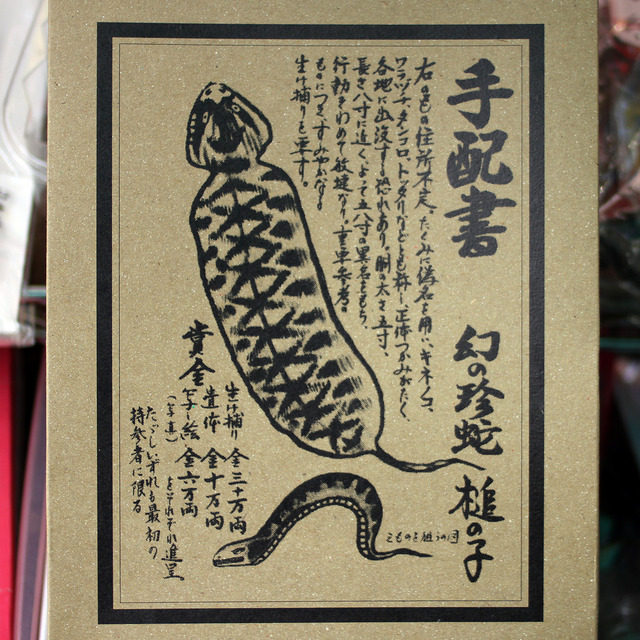 手配書
幻の珍蛇
槌の子
右のもの住所不定。たくみに偽名を用い、キネノコ、
ワラツチ、タンコロ、トッタリなどとも称し正体つかみがたく、
各地に出没する恐れあり。胴の太さ五寸、
長さ八寸に近く、よって五八寸の異名をもち、
行動きわめて敏捷なり。
ものにつき、すみやかなる
生け捕りを要す。
賞金
生け捕り 金三十万両
遺体 金十万両
写し絵 金六万両
(写真)
をそれぞれ進呈。
ただしいずれも最初の
持参者に限る